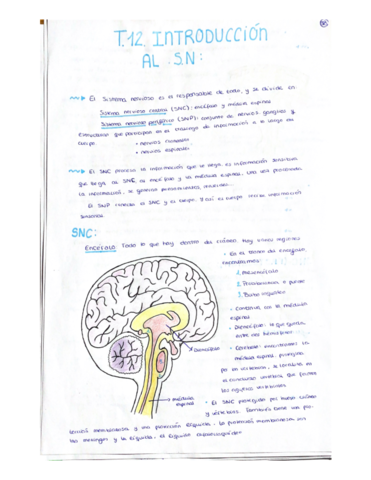 T.12. INTRODUCCIÓN
AL S.N:
El Sistema nervioso es el responsable de todo, y se divide en
Sistema nervioso central (SNC): encéfalo y médula espinal
Sistema nervioso periférico (SNP): conjunto de nervios ganglios y
que participan en el de información a lo largo del
cuerpo
• nervios craneales
• nervios espinales
El SNC procesa la información que le llega. es información sensitiva
que llega al SNC, al encéfalo y la médula espinal. Una vez procesada
la información, se generan pensamientos, emociones...
El SNP conecta el SNC y el cuerpo. Y así el cuerpo información
SNC:
Encéfalo: Todo lo que hay dentro del cráneo, hay varias regiones
• En el tronco del encéfalo
encontramos:
1. mesencéfalo
2. Protuberancia o puente
3. Bulbo raquídeo
• Continúa con la médula
espinal
• Diencéfalo: lo que queda
entre los hemisferios
• médula espinal protegida
por la vértebras, la vertebral es
el vertebral que forman
los vertebrales
Diencéfalo
médula
espinal
• El SNC protegido por hueso cráneo
y vértebras. También tiene una pro-
tección membranosa y una protección líquida. La protección membranosa son
las meninges y la líquida, el líquido cefalorraquídeo